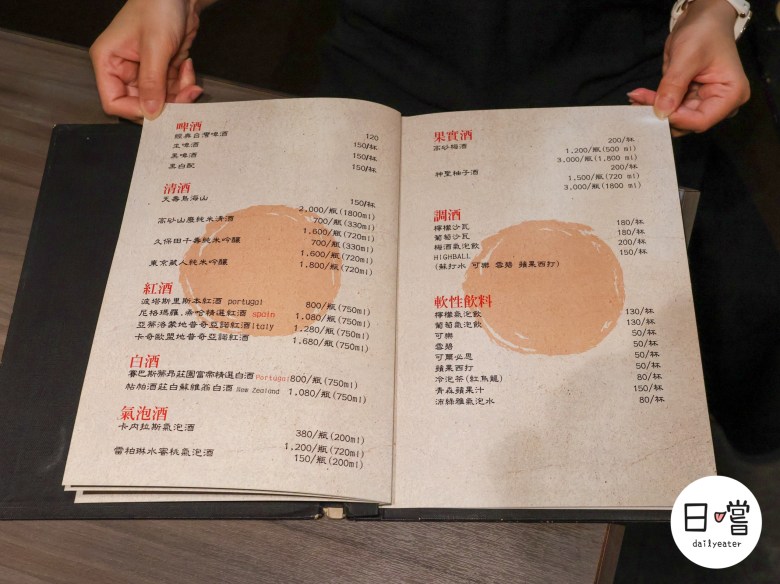 啤酒
經典台灣啤酒 120
生啤酒 150/杯
黑啤酒 150/杯
黑白配 150/杯
清酒
天壽鳥海山 150/杯
2.000/瓶(1800ml)
高砂山廢純米清酒 700/瓶(330ml)
1.600/瓶(720ml)
久保田千壽純米吟釀 700/瓶(330ml)
1.600/瓶(720ml)
東京藏人純米吟釀 1.800/瓶(720ml)
紅酒
波塔斯里斯本紅酒 portugal 800/瓶(750ml)
尼格瑪羅.桑哈精選紅酒 spain 1.080/瓶(750ml)
亞蒂洛蒙地普奇亞諾紅酒Italy 1.280/瓶(750ml)
卡奇歐盟地普奇亞諾紅酒 1.680/瓶(750ml)
白酒
賽巴斯蒂昂莊園富帝精選白酒 Portugal 800/瓶(750ml)
帖帕酒莊白蘇維翁白酒 New Zealand 1.080/瓶(750ml)
氣泡酒
卡內拉斯氣泡酒 380/瓶(200ml)
1.200/瓶(720ml)
雷柏琳水蜜桃氣泡酒 150/瓶(200ml)
果實酒
高砂梅酒 200/杯
1.200/瓶(500 ml)
3.000/瓶(1,800 ml)
神聖柚子酒 200/杯
1,500/瓶(720 ml)
3,000/瓶(1800 ml)
調酒
檸檬沙瓦 180/杯
葡萄沙瓦 180/杯
梅酒氣泡飲 200/杯
HIGHBALL 150/杯
(蘇打水 可樂 雪碧 蘋果西打)
軟性飲料
檸檬氣泡飲 130/杯
葡萄氣泡飲 130/杯
可樂 50/杯
雪碧 50/杯
可爾必思 80/杯
蘋果西打 50/杯
冷泡茶(紅烏龍) 80/杯
青森蘋果汁 150/杯
沛綠雅氣泡水 80/杯
日嚐
dailyeater